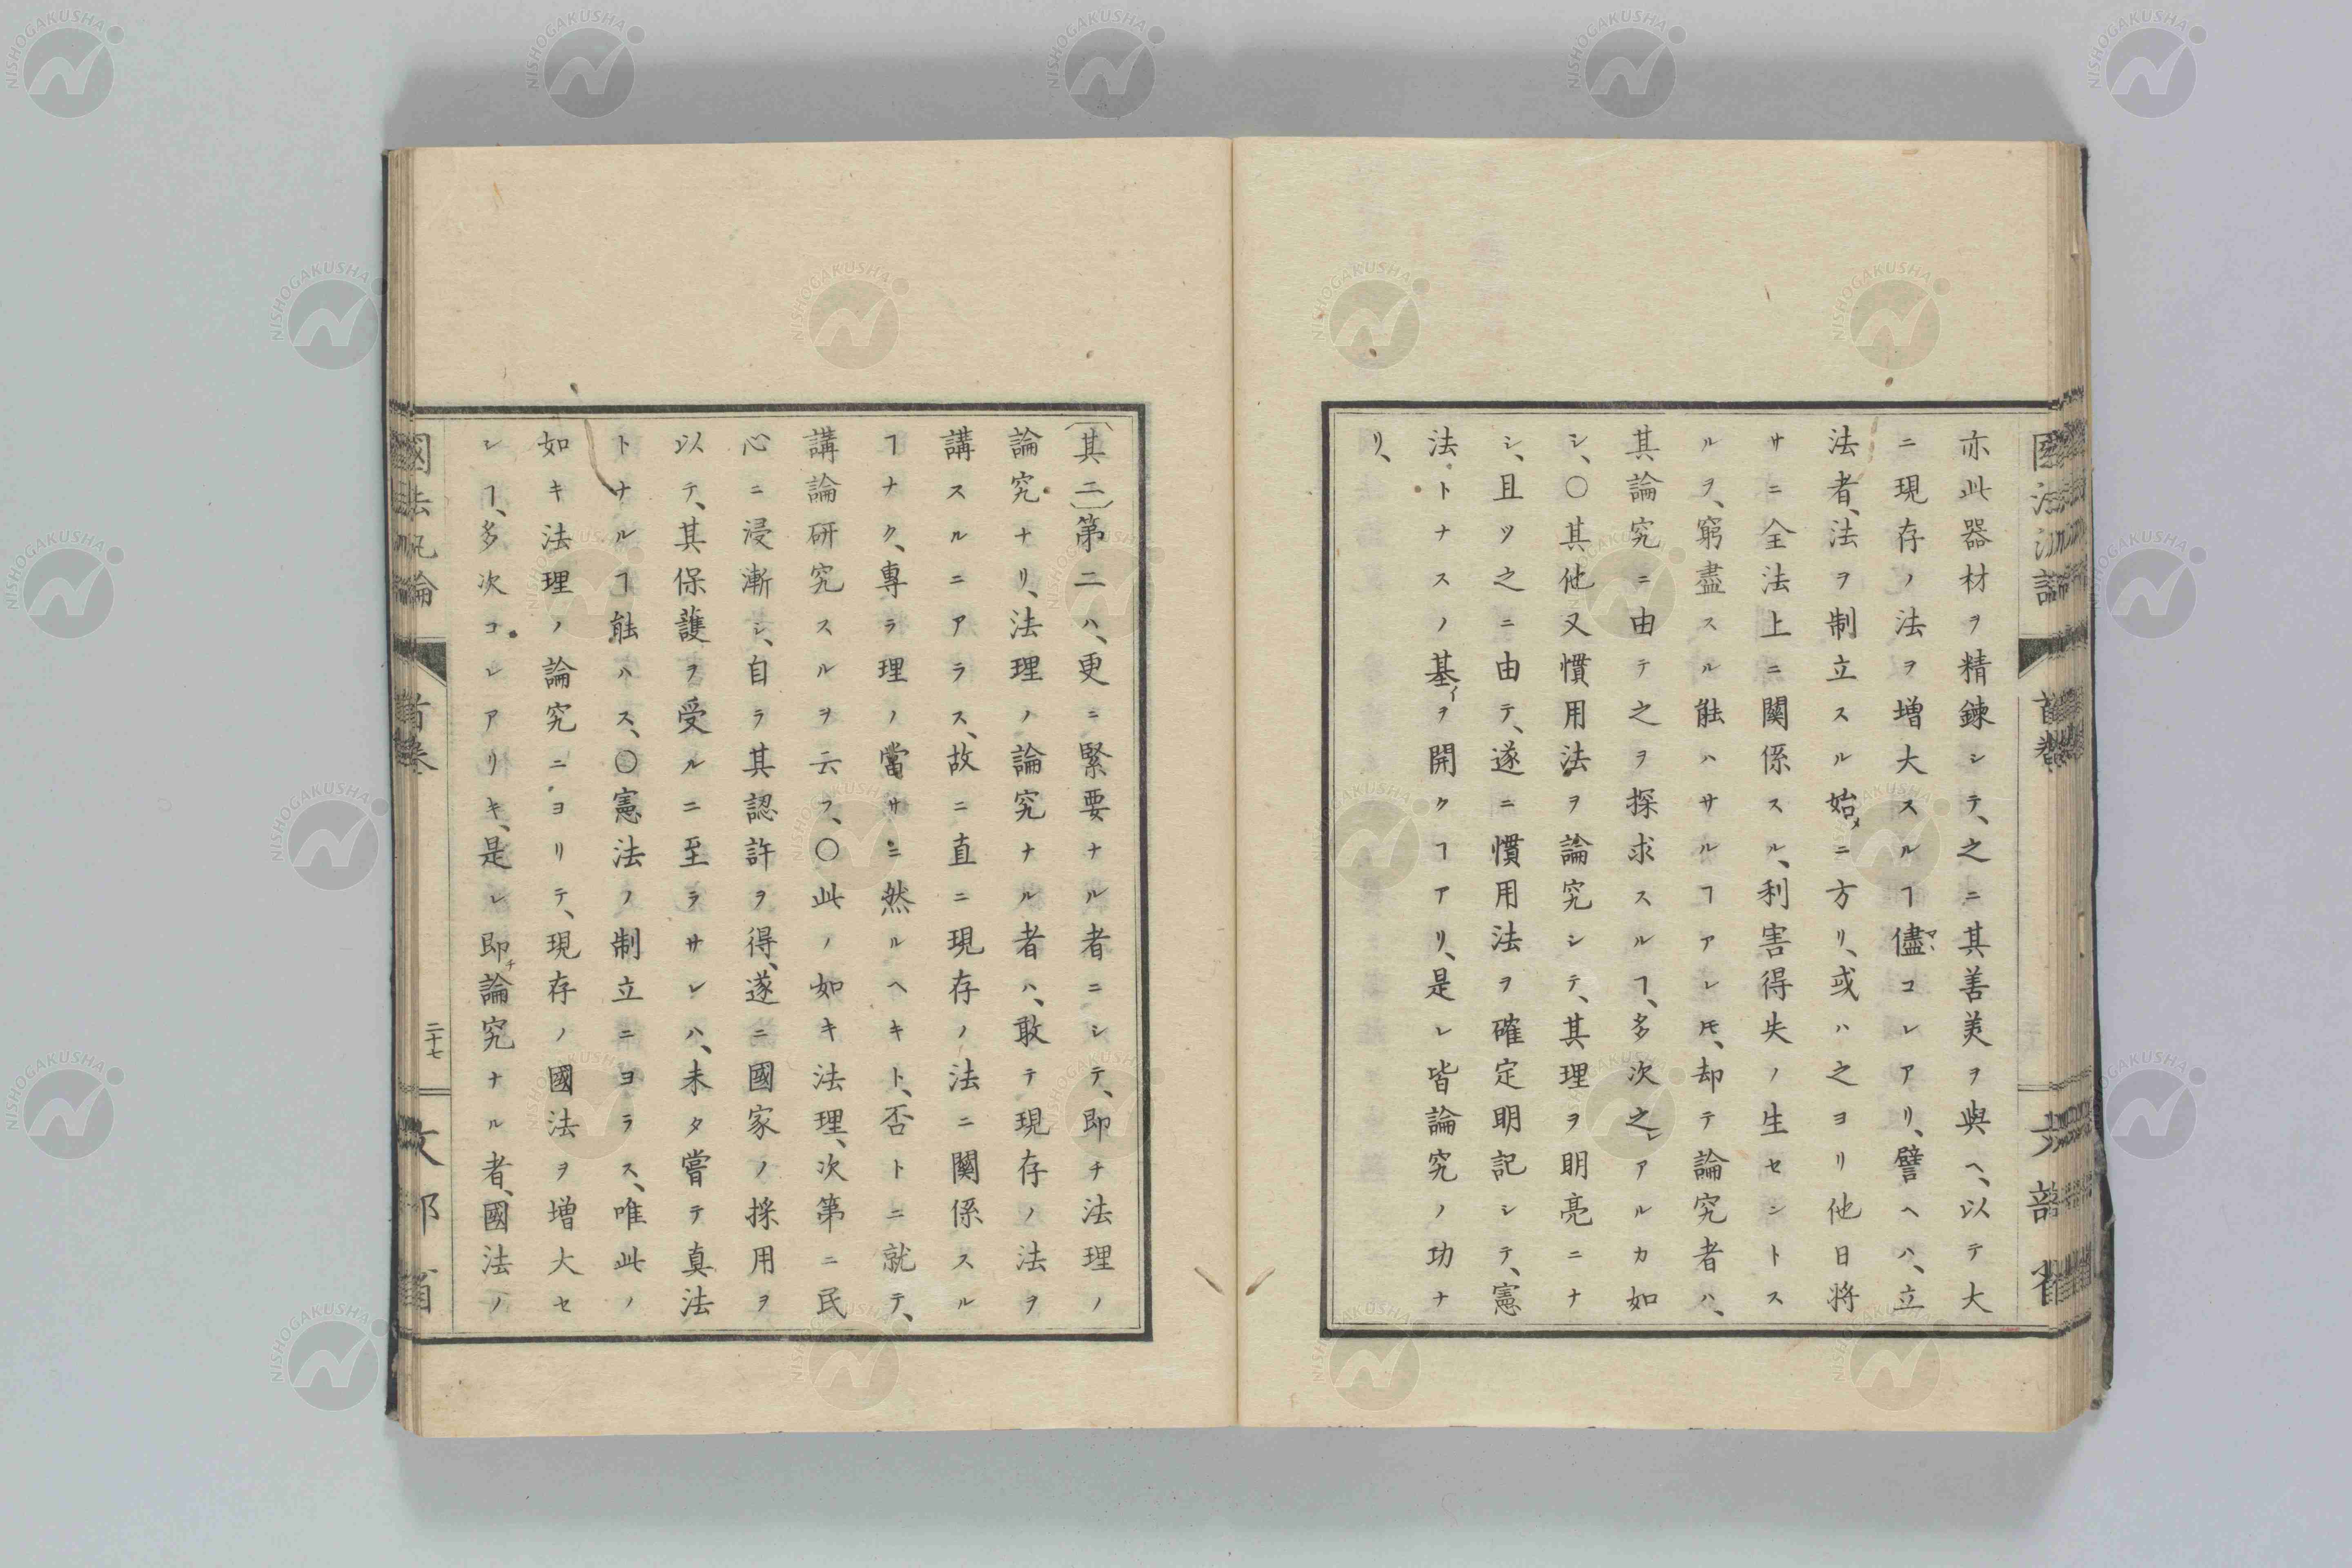 亦此器材ヲ精錬シテ、之ニ其善美ヲ與ヘ、以テ大
ニ現存ノ法ヲ増大スルヿ儘マヽコレアリ、譬ヘハ、立
法者、法ヲ制立スル始メニ方リ、或ハ之ヨリ他日將
サニ全法上ニ關係スル、利害得失ノ生セントス
ルヲ、窮盡スル能ハサルヿアレ𪜈、却テ論究者ハ、
其論究ニ由テ之ヲ探求スルヿ、多次之レアルカ如
シ、〇其他又慣用法ヲ論究シテ、其理ヲ明亮ニナ
シ、且ツ之ニ由テ、遂ニ慣用法ヲ確定明記シテ、憲
法トナスノ基イヲ開クヿアリ、是レ皆論究ノ功ナ
リ、
〔其二〕第二ハ、更ニ緊要ナル者ニシテ、即チ法理ノ
論究ナリ、法理ノ論究ナル者ハ、敢テ現存ノ法ヲ
講スルニアラス、故ニ直ニ現存ノ法ニ關係スル
ヿナク、專ラ理ノ當サニ然ルヘキト、否トニ就テ、
講論研究スルヲ云フ、〇此ノ如キ法理、次第ニ民
心ニ浸漸シ、自ラ其認許ヲ得、遂ニ國家ノ採用ヲ
以テ、其保護ヲ受ルニ至ラサレハ、未タ嘗テ真法
トナルヿ能ハス、〇憲法ノ制立ニヨラス、唯此ノ
如キ法理ノ論究ニヨリテ、現存ノ國法ヲ増大セ
シヿ、多次コレアリキ、是レ即チ論究ナル者、國法ノ
國法汎論
首卷
二十七
文部省